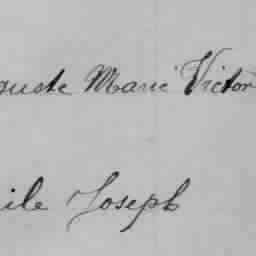 guste Marie Victor
ile Joseph